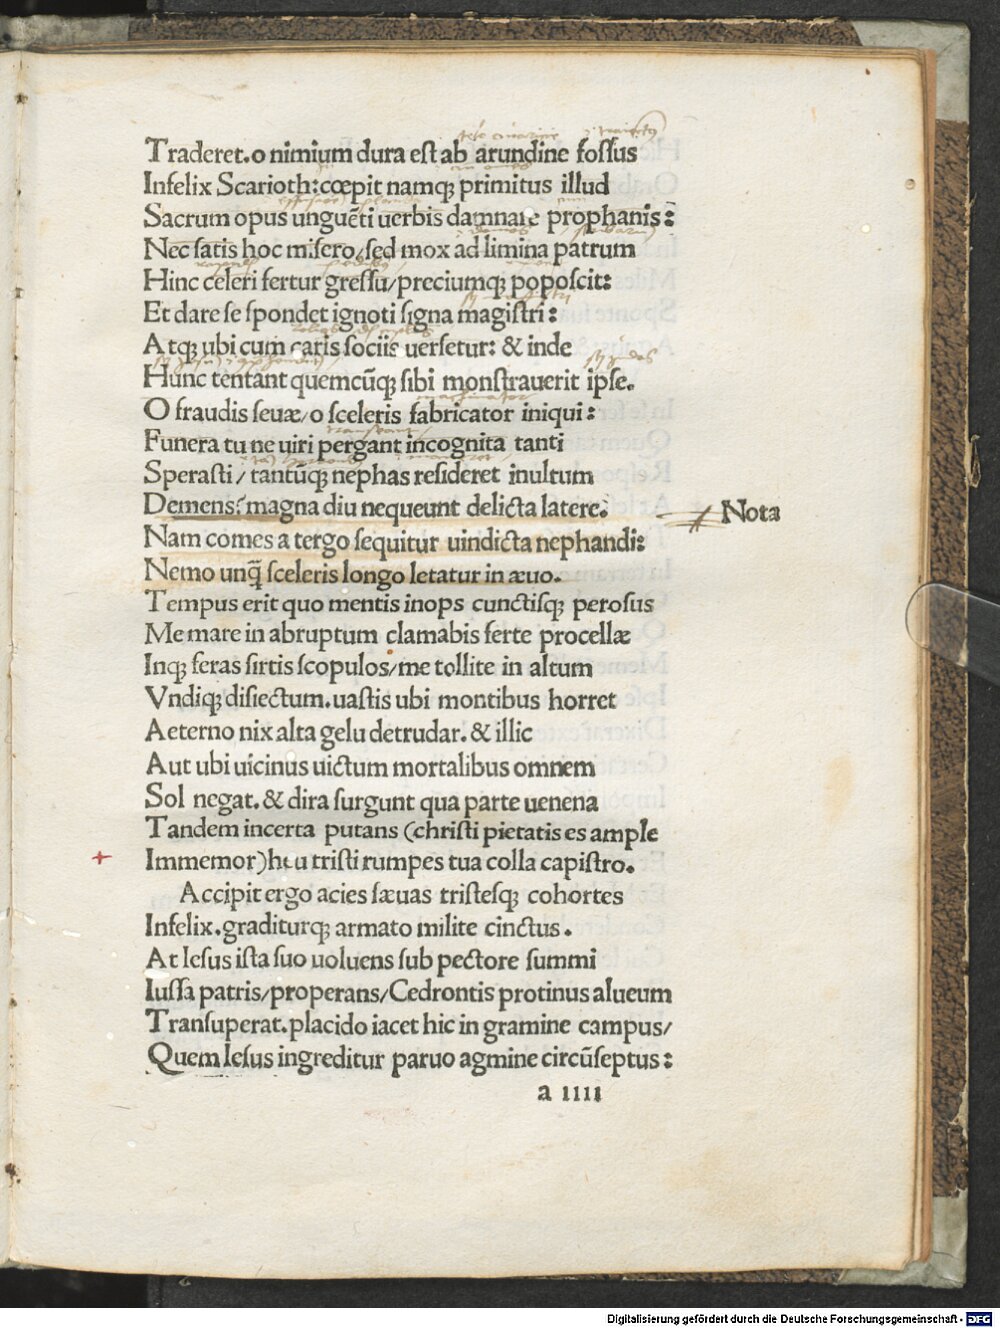 Traderet.o nimium dura est ab arundine fossus
Infelix Scarioth:cœpit namq; primitus illud
Sacrum opus unguēti uerbis damnare prophanis:
Nec satis hoc misero/sed mox ad limina patrum
Hinc celeri fertur gressu/preciumq; poposcit:
Et dare se spondet ignoti signa magistri:
Atq; ubi cum caris sociis uersetur: & inde
Hunc tentant quemcūq; sibi monstrauerit ipse.
O fraudis seuæ/o sceleris fabricator iniqui:
Funera tu ne uiri pergant incognita tanti
Sperasti/tantūq; nephas resideret inultum
Demens? magna diu nequeunt delicta latere.
Nota
Nam comes a tergo sequitur uindicta nephandi:
Nemo unq̄ sceleris longo letatur in æuo.
Tempus erit quo mentis inops cunctisq; perosus
Me mare in abruptum clamabis ferte procellæ
Inq; feras sirtis scopulos/me tollite in altum
Vndiq; disiectum.uastis ubi montibus horret
Aeterno nix alta gelu detrudar.& illic
Aut ubi uicinus uictum mortalibus omnem
Sol negat.& dira surgunt qua parte uenena
Tandem incerta putans (christi pietatis es ample
Immemor)heu tristi rumpes tua colla capistro.
Accipit ergo acies sæuas tristesq; cohortes
Infelix.graditurq; armato milite cinctus.
At Iesus ista suo uoluens sub pectore summi
Iussa patris/properans/Cedrontis protinus alueum
Transuperat.placido iacet hic in gramine campus/
Quem Iesus ingreditur paruo agmine circūseptus:
a IIII
Digitalisierung gefördert durch die Deutsche Forschungsgemeinschaft - DFG